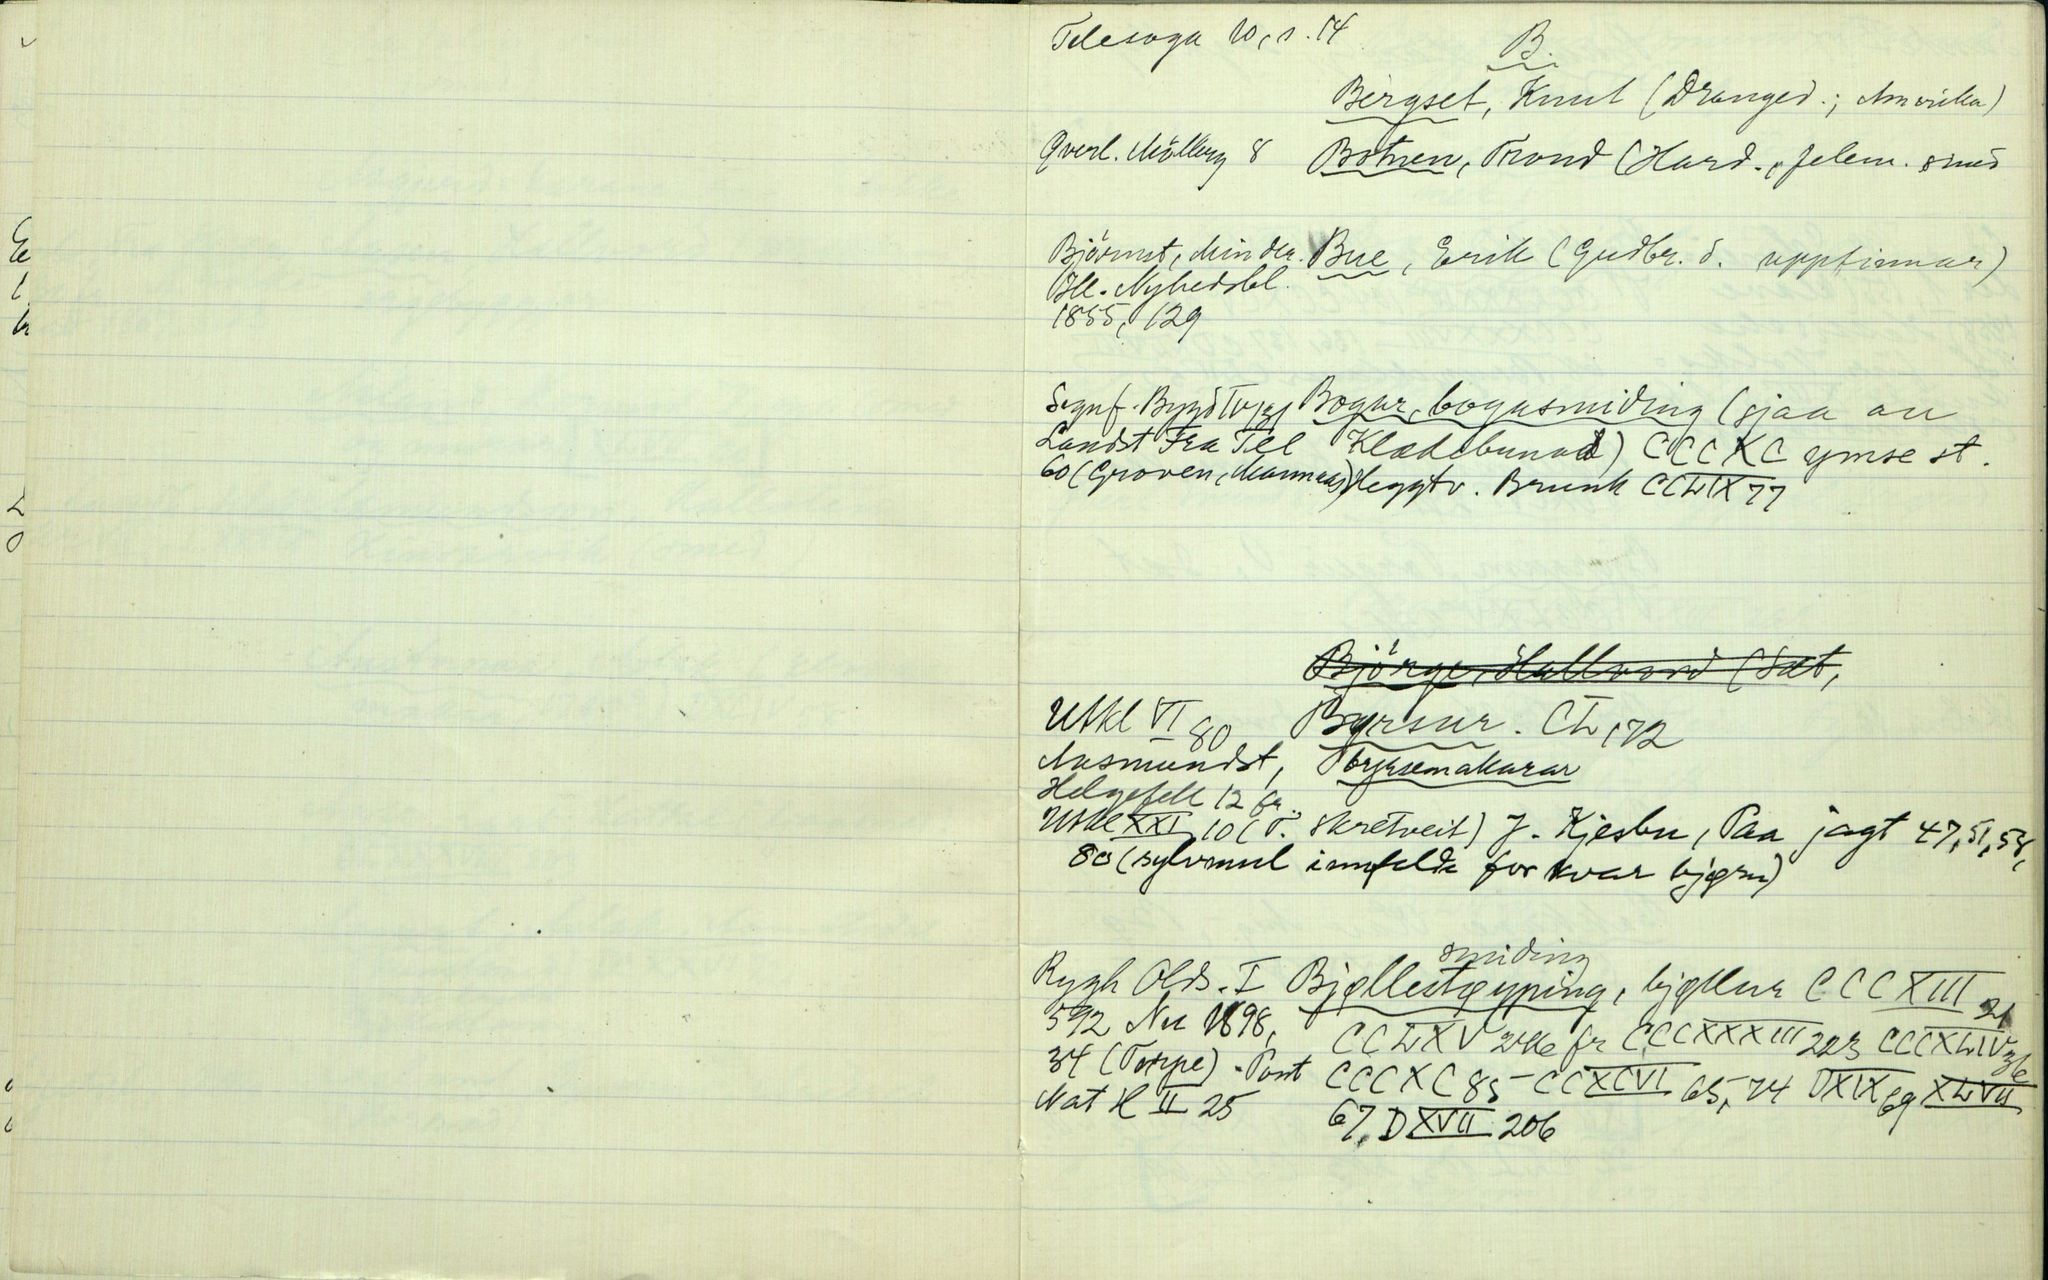 Telesoga 10, s. 14
B.
Bergset, Knut (Dranged.; Amerika)
Qverl. Mållberg 8 Botnen, Trond (Hard., felem. smed
Björnst, Minder. Bue, Erik (Gudbr. d. uppfinnar)
Ill. Nyhedsbl.
1855, 129
Segnf. Bygd IV, Bogar, bogasmiding (sjaa au
Landst Fra Tel Klædebunad) CCCXC ymse st.
60 (Groven, Mannaas) Heggtv. Brunk CCLIX 77
Björge, Hallvord (Sæt,
Utkl VI 80 Byrsur. CL, 72
Aasmundst, byrsemakarar
Helgefell 12 fr.
Utkl XXI 10 (T. Skretveit) J. Kjesbu, Paa jagt 47, 51, 58,
80 (sylvmul innfelde for kvar bjørn)
smiding
Rygh Olds. I Bjøllestøyping, bjøllur CCCXIII 21
592 Nu 1898, CCLXV 206 fr CCCXXXIII 223 CCCXLIV 36
34 (Torpe). Pont CCCXC 85 - CCXCVI 65, 74 DXIX 69 XLVII
Nat H II 25 67, DXVII 206